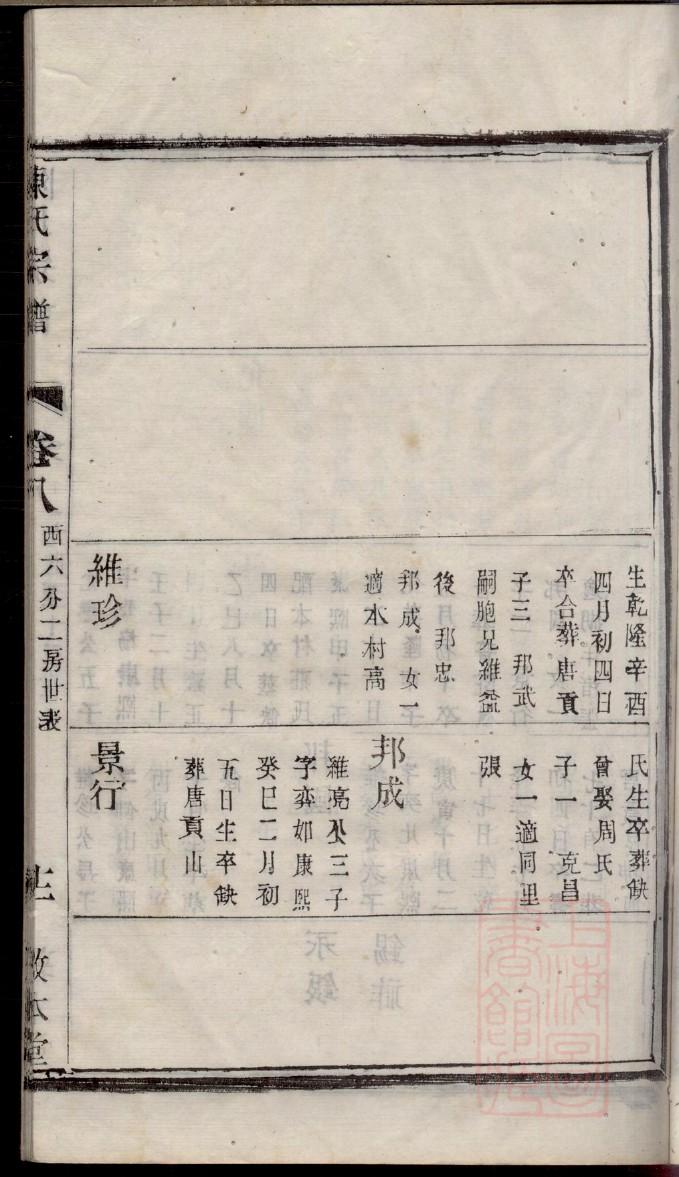 生乾隆辛酉
四月初四日
卒合葬唐貢
子三 邦武
嗣胞兄維盆
後 邦忠
邦成 女一
適本村高
維珍
氏生卒葬缺
曾娶周氏
子一 克昌
女一適同里
張
邦成
維亮公三子
字奕如康熙
癸巳二月初
五日生卒缺
葬唐貢山
景行
陳氏宗譜
卷八
西六分二房世表
敦本堂
上海圖書館藏